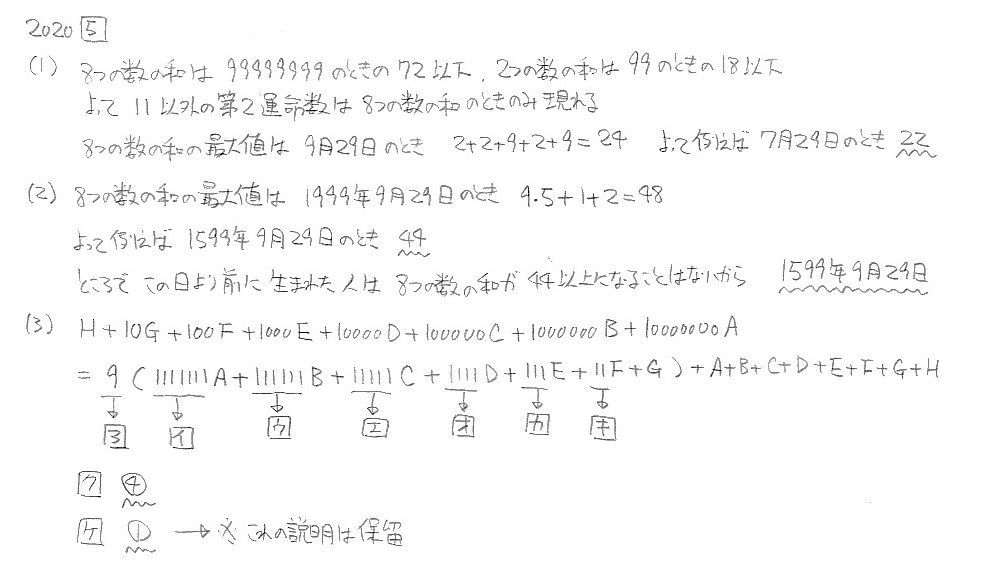 2020 5
(1) 8つの数の和は 99999999のときの72以下、2つの数の和は99のときの18以下
よって 11以外の第2運命数は8つの数の和のときのみ現れる
8つの数の和の最大値は 9月29日のとき 2+2+9+2+9=24 よって例えば 7月29日のとき 22
(2) 8つの数の和の最大値は 1999年9月29日のとき 9・5+1+2=48
よって例えば 1599年9月29日のとき 44
ところで この日より前に生まれた人は 8つの数の和が44以上になることはないから 1599年9月29日
(3) H+10G+100F+1000E+10000D+100000C+1000000B+10000000A
= 9 (1111111A+111111B+11111C+1111D+111E+11F+G)+A+B+C+D+E+F+G+H
ヨ イ ウ エ オ カ キ
ク ④
ケ ① → ※ これの説明は保留